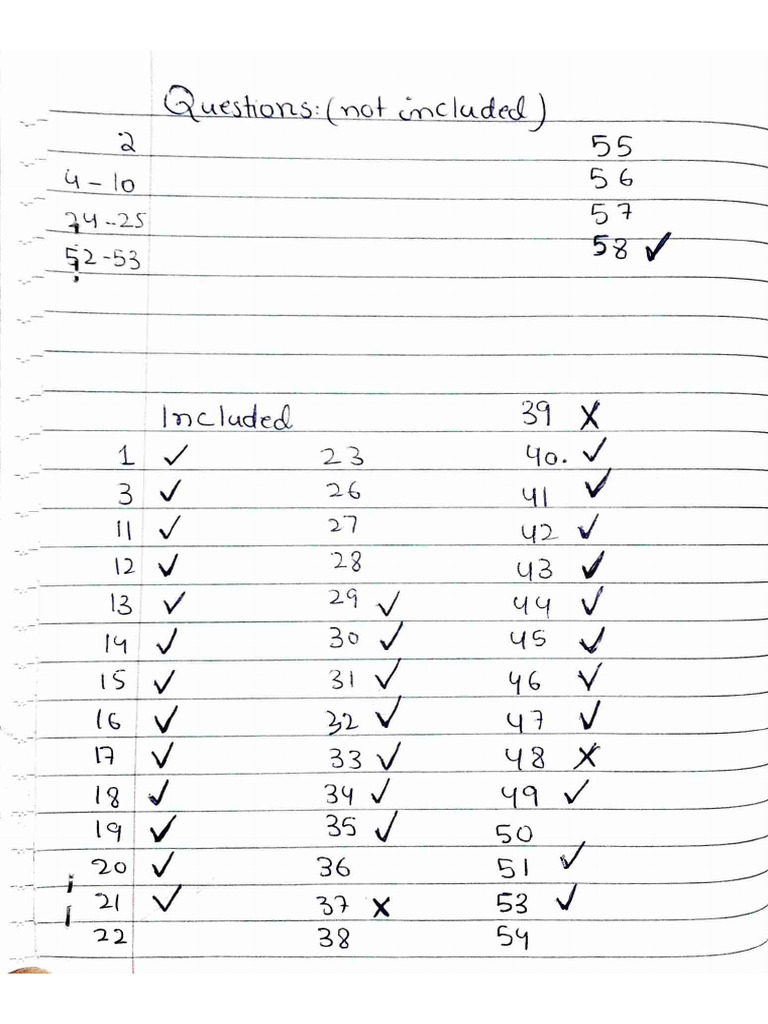 Questions: (not included)
2 55
4 - 10 56
24 - 25 57
52 - 53 58 ✓
Included 39 X
1 ✓ 23 40. ✓
3 ✓ 26 41 ✓
11 ✓ 27 42 ✓
12 ✓ 28 43 ✓
13 ✓ 29 ✓ 44 ✓
14 ✓ 30 ✓ 45 ✓
15 ✓ 31 ✓ 46 ✓
16 ✓ 32 ✓ 47 ✓
17 ✓ 33 ✓ 48 X
18 ✓ 34 ✓ 49 ✓
19 ✓ 35 ✓ 50
20 ✓ 36 51 ✓
21 ✓ 37 X 53 ✓
22 38 54